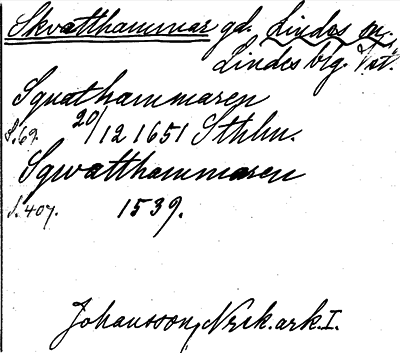 Skvatthammar gd. Lindes sn.
Lindes brg. Vst.
Squathammaren
S. 69. 20/12 1651 Sthlm.
Sqwatthammaren
S. 407. 1539.
Johansson, Nrck. ark. I.